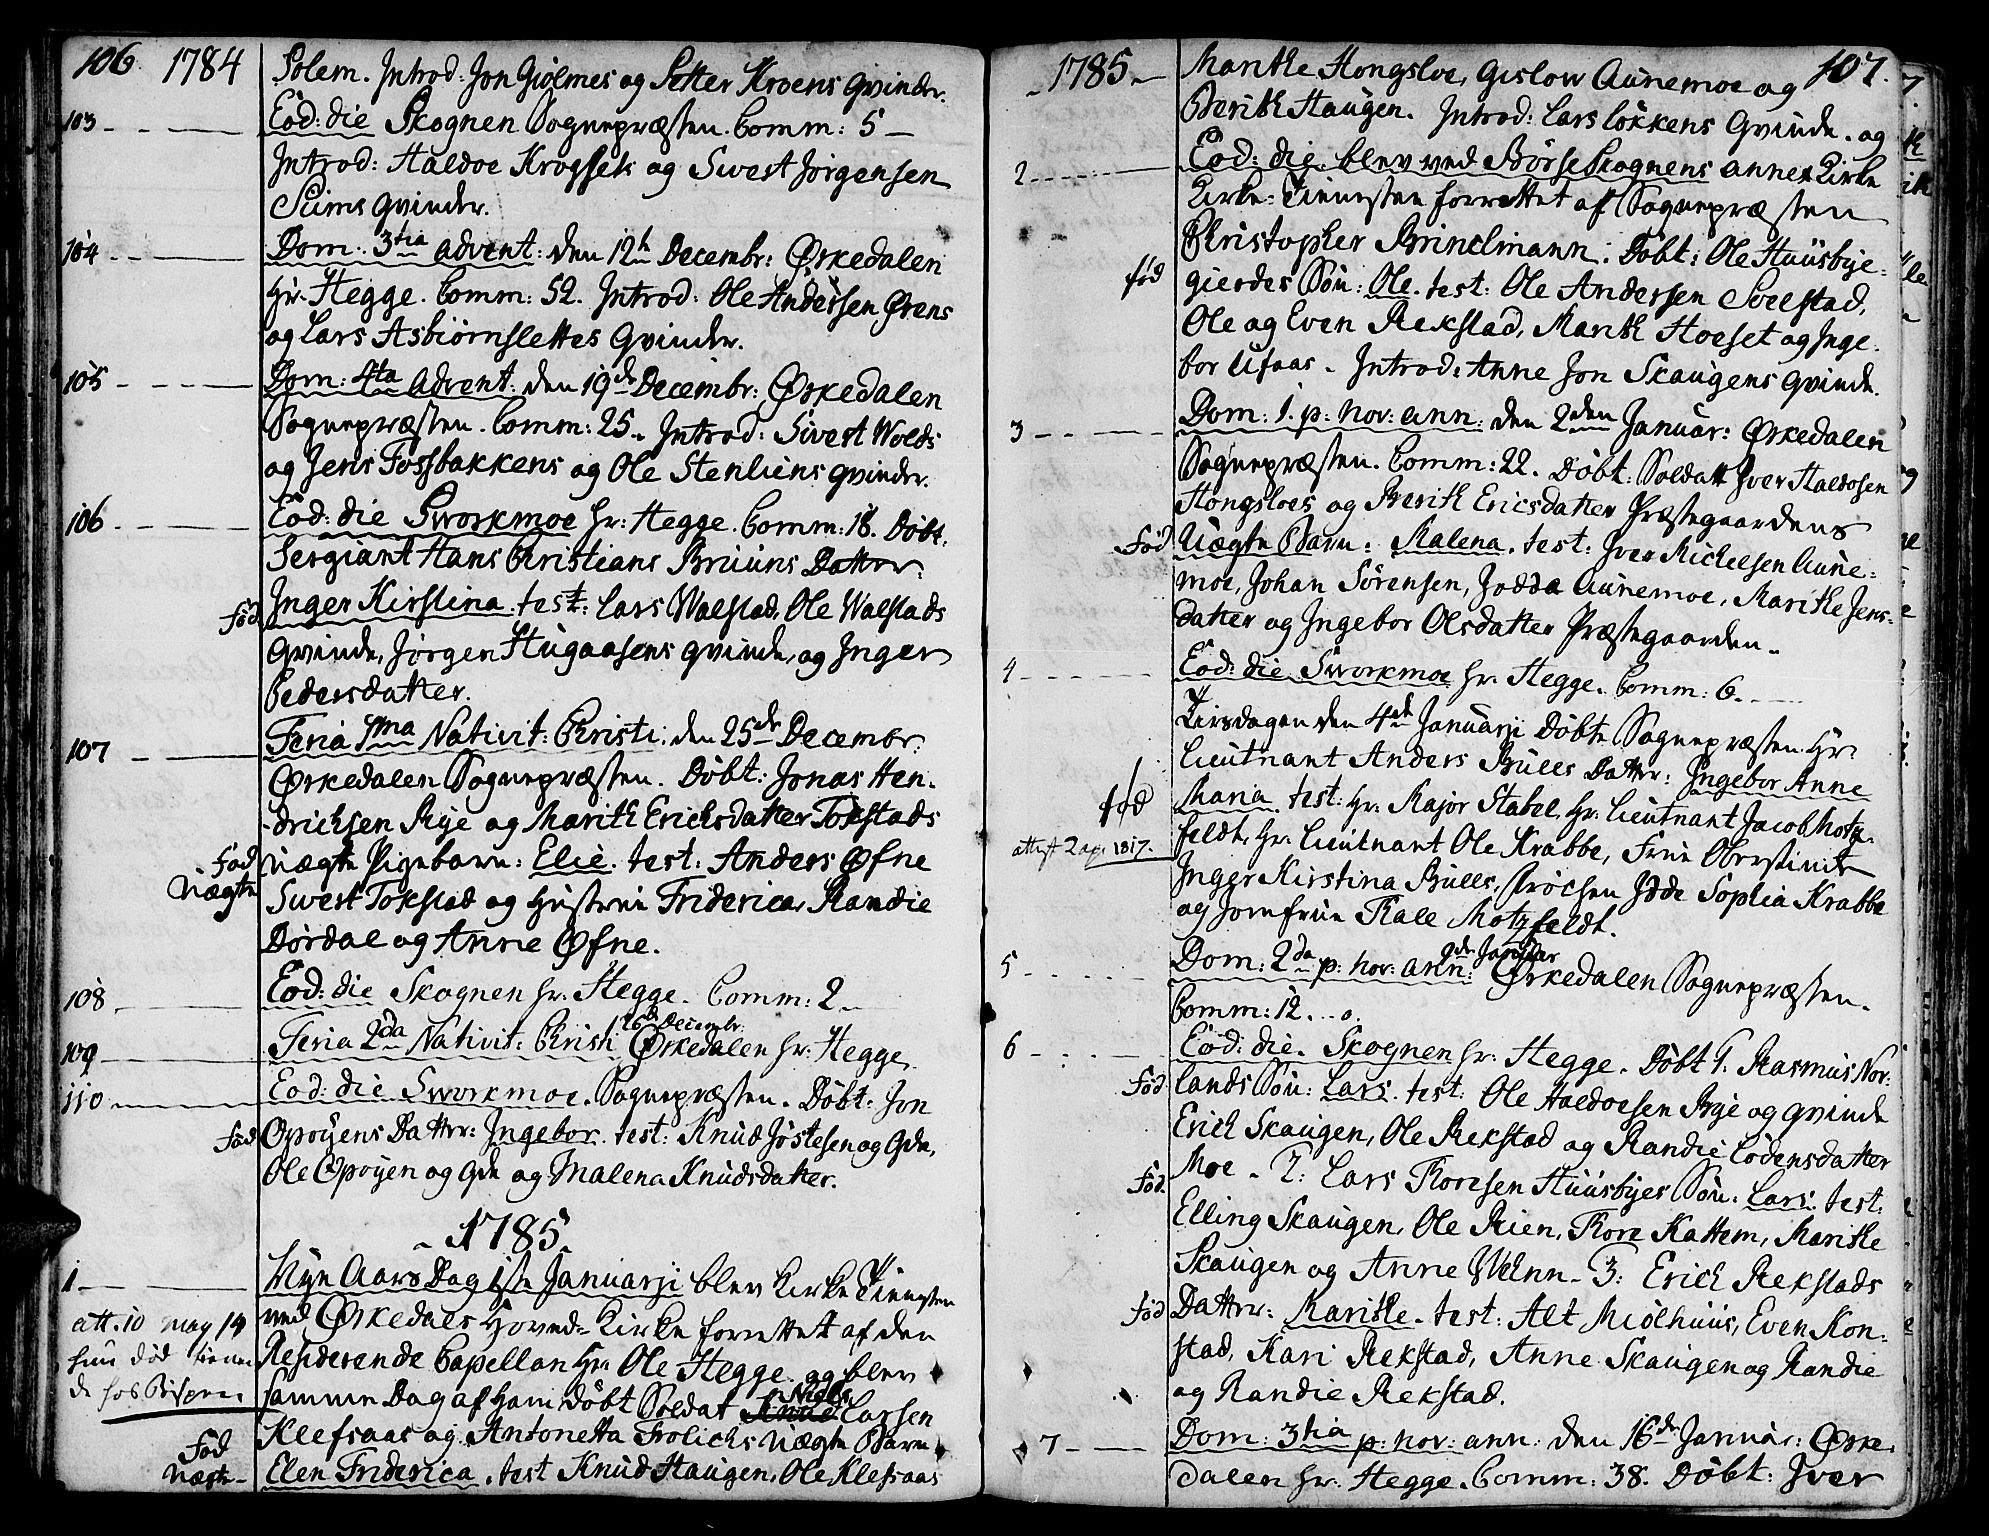 106 1784
Solem. Introd: Jon Giølmes og Setter Kroens Qvinder.
103 Eod: die Skognen Sognepræsten. Comm: 5 –
Introd: Haldoe Krogssek og Swest Jörgensen
Suims Qvinder.
104 Dom: 3tia advent: den 12te Decembr: Ørkedalen
Hr. Hegge. Comm: 52. Introd: Ole Andersen Ørens
og Lars Asbiörnslettes Qvinder.
105 Dom: 4ta Advent: den 19de Decembr: Ørkedalen
Sognepræsten. Comm: 25. Introd: Sivert Wolds
og Jens Fossbakkens og Ole Stenliens Qvinder.
106 Eod: die Sworkmoe hr: Hegge. Comm: 18. Döbt:
Sergiant Hans Christians Bruuns Datter:
Föd Inger Kirstina. test: Lars Walstad, Ole Walstads
Qvinde, Jörgen Hugaasens Qvinde, og Inger
Pedersdatter.
107 Feria 1ma Nativit: Christi: den 25de Decembr.
Ørkedalen Sognepræsten. Döbt: Jonas Hen-
drichsen Rye og Marith Erichsdatter Tokstads
Föd Uægte Uægte Pigebarn: Elie. test: Anders Øfne
Swest Tokstad og Hustrue Friderica, Randie
Dördal og Anne Øfne.
108 Eod: die Skognen hr. Hegge. Comm: 2
109 Feria 2da Nativit: Christi 26d Decembr: Ørkedalen hr: Hegge.
110 Eod: die Sworkmoe. Sognepræsten. Döbt: Jon
Föd Opöyens Datter: Ingebor. test: Knud Jöstesen og Qde,
Ole Opöyen og Qde og Malena Knudsdatter.
1785
1 Nyn Aars Dag 1ste Januarji blev Kirke Tienesten
att. 10 may 14 ved Ørkedals Hoved-Kirke forrettet af den
hun död Residerende Capellan Hr. Ole Hegge og blev
samme Dag af ham döbt Soldat Knud Niels Larsen
Föd Klefsaas og Antonetta Frolichs Uægte Barn
Uægte Elen Friderica. test Knud Haugen, Ole Klefsaas
1785 107.
Marithe Hongsloe, Gislow Aunemoe og
Berith Haugen. Introd: Lars Lökkens Qvinde. og
2 Eod: die blev ved Börse Skognens annex Kirke
Kirke-Tienesten forrettet af Sognepræsten
Christopher Brinclmann: Döbt: Ole Huusbye-
föd gierdes Sön: Ole. test: Ole Andersen Sveestad,
Ole og Even Rekstad, Marith Hoeset og Inge-
bor Ufaas. Introd: Anne Jon Skaugens Qvinde.
3 Dom: 1. p: nov: ann: den 2den Januar: Ørkedalen
Sognepræsten. Comm: 22. Döbt: Soldatt Iver Haldosen
Hongsloes og Berith Ericsdatter Præstegaardens
Föd Uægte Barn: Malena. test: Iver Micheelsen Aune-
moe, Johan Sörensen, Jodde Aunemoe, Marithe Jens-
datter og Ingebor Olsdatter Præstegaarden.
4 Eod: die Sworkmoe hr. Hegge. Comm: 6.
Tirsdagen den 4de Januarji Döbte Sognepræsten Hr.
Lieutnant Anders Bulls Datter: Ingebor Anne
föd Maria. test: Hr. Major Stabel, Hr. Lieutnant Jacob Motz-
attest 2 ap. 1817. feldt, Hr. Lieutnant Ole Krabbe, Frue Oberstinde
Inger Kirstina Bulls, Fröchen Idde Sophia Krabbe
og Jomfrue Kale Motzfeldt.
5 Dom: 2da p: nov: ann: Januar Ørkedalen Sognepræsten.
Comm: 12.
6 Eod: die. Skognen hr: Hegge. Döbt 1. Rasmus Nor-
Föd lands Sön: Lars. test: Ole Haldoesen Rye og Qvinde
Erich Skaugen, Ole Rekstad og Randie Lodensdatter
Föd Moe. 2: Lars Thoresen Huusbyes Sön. Lars. test:
Elling Skaugen, Ole Rien, Thore Kattem, Marithe
Skaugen og Anne Wenn. 3: Erich Rekstads
Föd Datter: Marithe. test: Alt Miölhuus, Even Kon-
stad, Kari Rekstad, Anne Skaugen og Randie
og Randie Rekstad.
7 Dom: 3tia p: nov: ann: den 16de Januar: Ørke-
dalen hr. Hegge. Comm: 38. Döbt: Iver